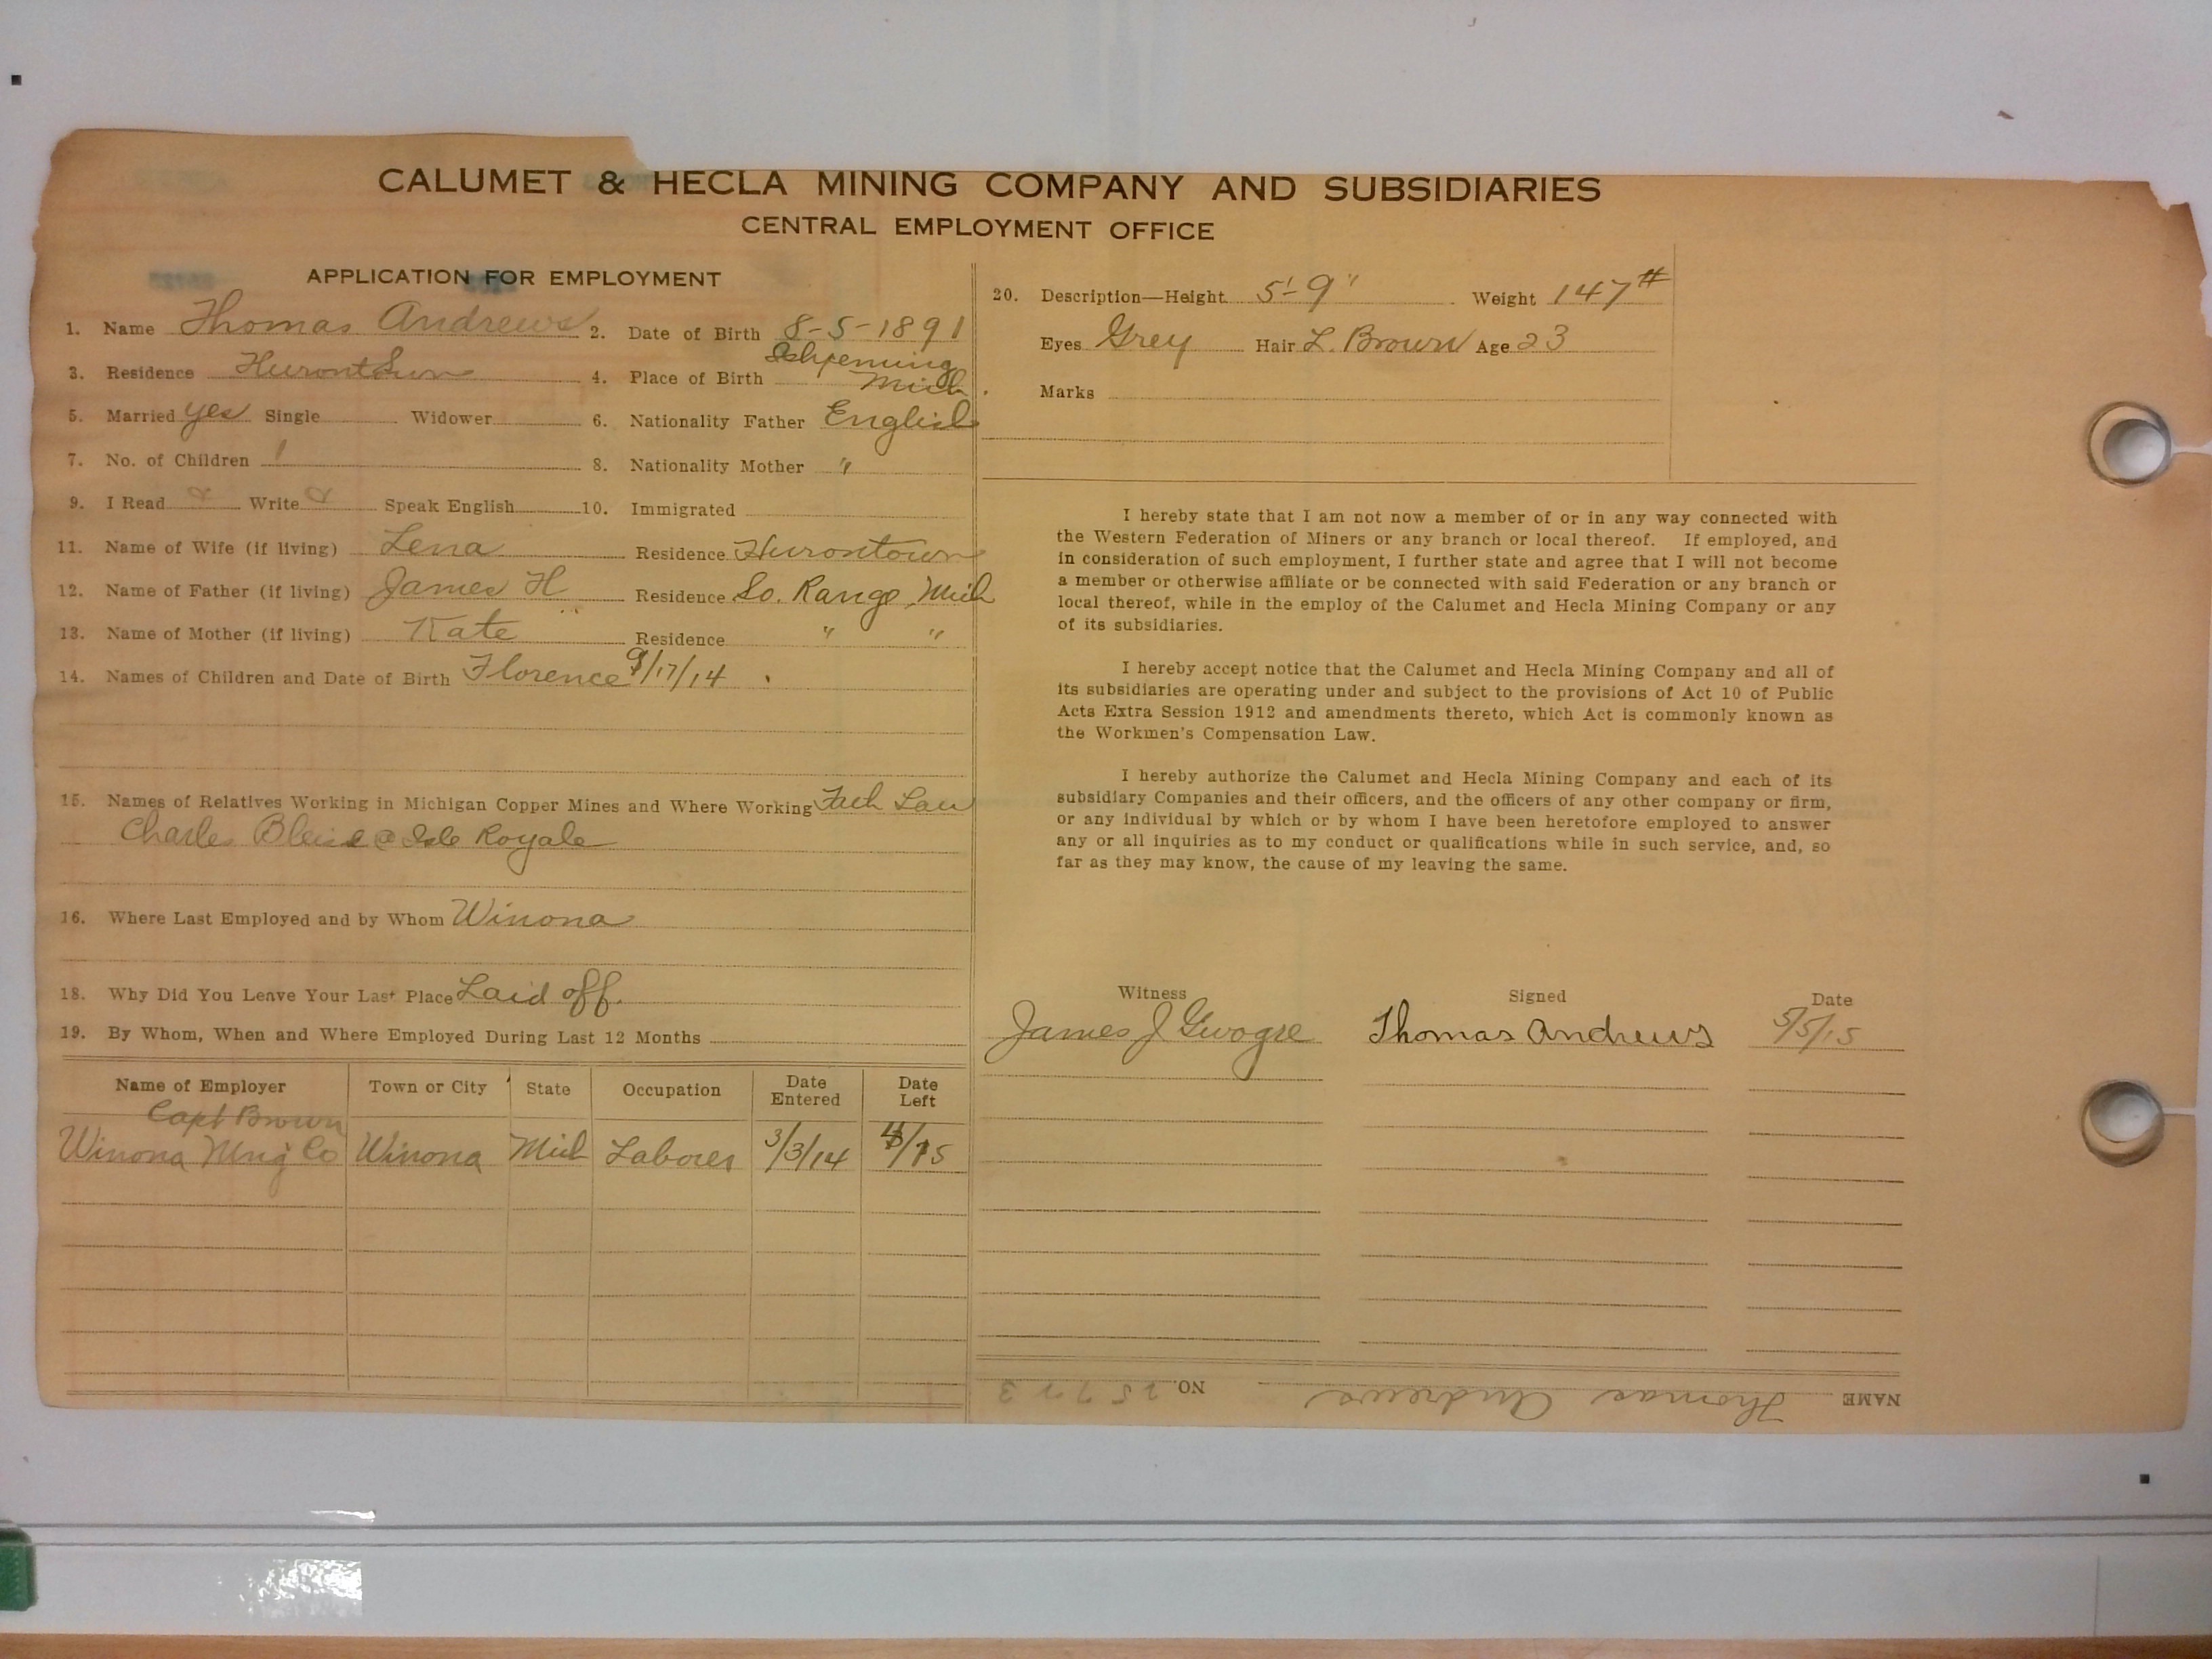 CALUMET & HECLA MINING COMPANY AND SUBSIDIARIES
CENTRAL EMPLOYMENT OFFICE
APPLICATION FOR EMPLOYMENT
1. Name Thomas Andrews 2. Date of Birth 8-5-1891
3. Residence Hurontown 4. Place of Birth Ishpeming Mich.
5. Married yes Single Widower 6. Nationality Father English
7. No. of Children 1 8. Nationality Mother "
9. I Read Write Speak English 10. Immigrated
11. Name of Wife (if living) Lena Residence Hurontown
12. Name of Father (if living) James H Residence So. Range, Mich
13. Name of Mother (if living) Kate Residence " "
14. Names of Children and Date of Birth Florence 9/17/14
15. Names of Relatives Working in Michigan Copper Mines and Where Working Fath Law
Charles @ Isle Royale
16. Where Last Employed and by Whom Winona
18. Why Did You Leave Your Last Place Laid off.
19. By Whom, When and Where Employed During Last 12 Months
Name of Employer Town or City State Occupation Date Entered Date Left
Capt Brown
Winona Mng Co Winona Mich Laborer 3/3/14 /15
20. Description—Height 5'-9" Weight 147#
Eyes Grey Hair L. Brown Age 23
Marks
I hereby state that I am not now a member of or in any way connected with
the Western Federation of Miners or any branch or local thereof. If employed, and
in consideration of such employment, I further state and agree that I will not become
a member or otherwise affiliate or be connected with said Federation or any branch or
local thereof, while in the employ of the Calumet and Hecla Mining Company or any
of its subsidiaries.
I hereby accept notice that the Calumet and Hecla Mining Company and all of
its subsidiaries are operating under and subject to the provisions of Act 10 of Public
Acts Extra Session 1912 and amendments thereto, which Act is commonly known as
the Workmen's Compensation Law.
I hereby authorize the Calumet and Hecla Mining Company and each of its
subsidiary Companies and their officers, and the officers of any other company or firm,
or any individual by which or by whom I have been heretofore employed to answer
any or all inquiries as to my conduct or qualifications while in such service, and, so
far as they may know, the cause of my leaving the same.
Witness Signed Date
James J Thomas Andrews 5/5/15
NAME Thomas Andrews NO. 25773